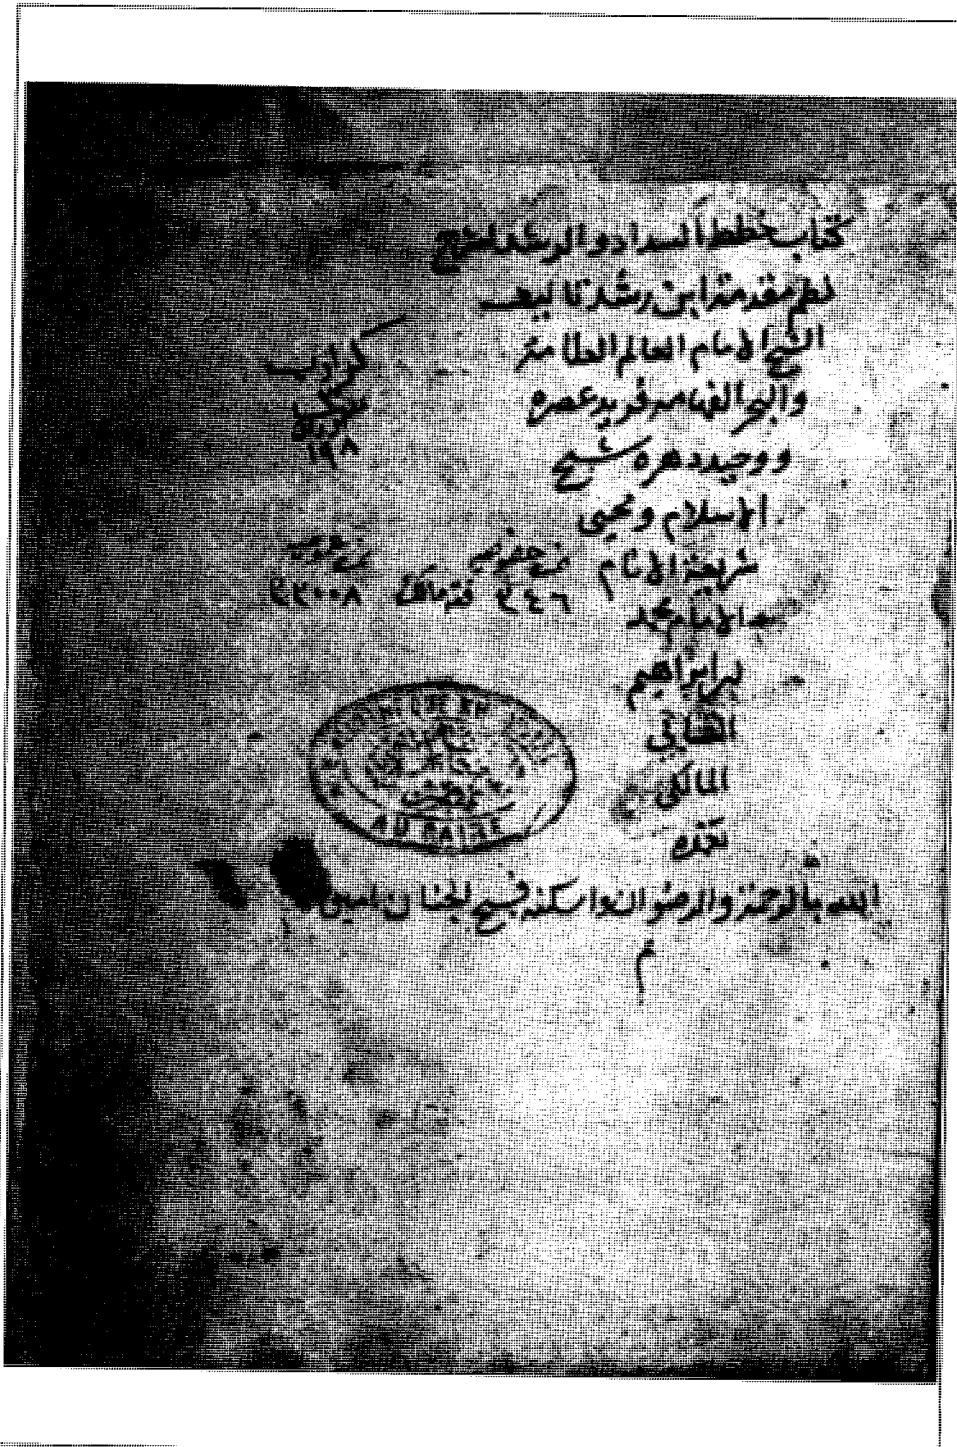 كتاب خطط السداد والرشد لشرح
نظم مقدمة ابن رشد تاليف
الشيخ الامام العالم العلامة
والبحر الفهامه فريد عصره
ووحيد دهره شيخ
الاسلام ومحيى
شريعة الانام
الامام محمد
بن ابراهيم
التتائي
المالكي
تغمده
الله بالرحمة والرضوان واسكنه فسيح الجنان امين
م
١٩٨
نمرة خصوصيه
٣٤٦
فقه مالك
نمرة عموميه
٢٢٠٠٨
AU CAIRE